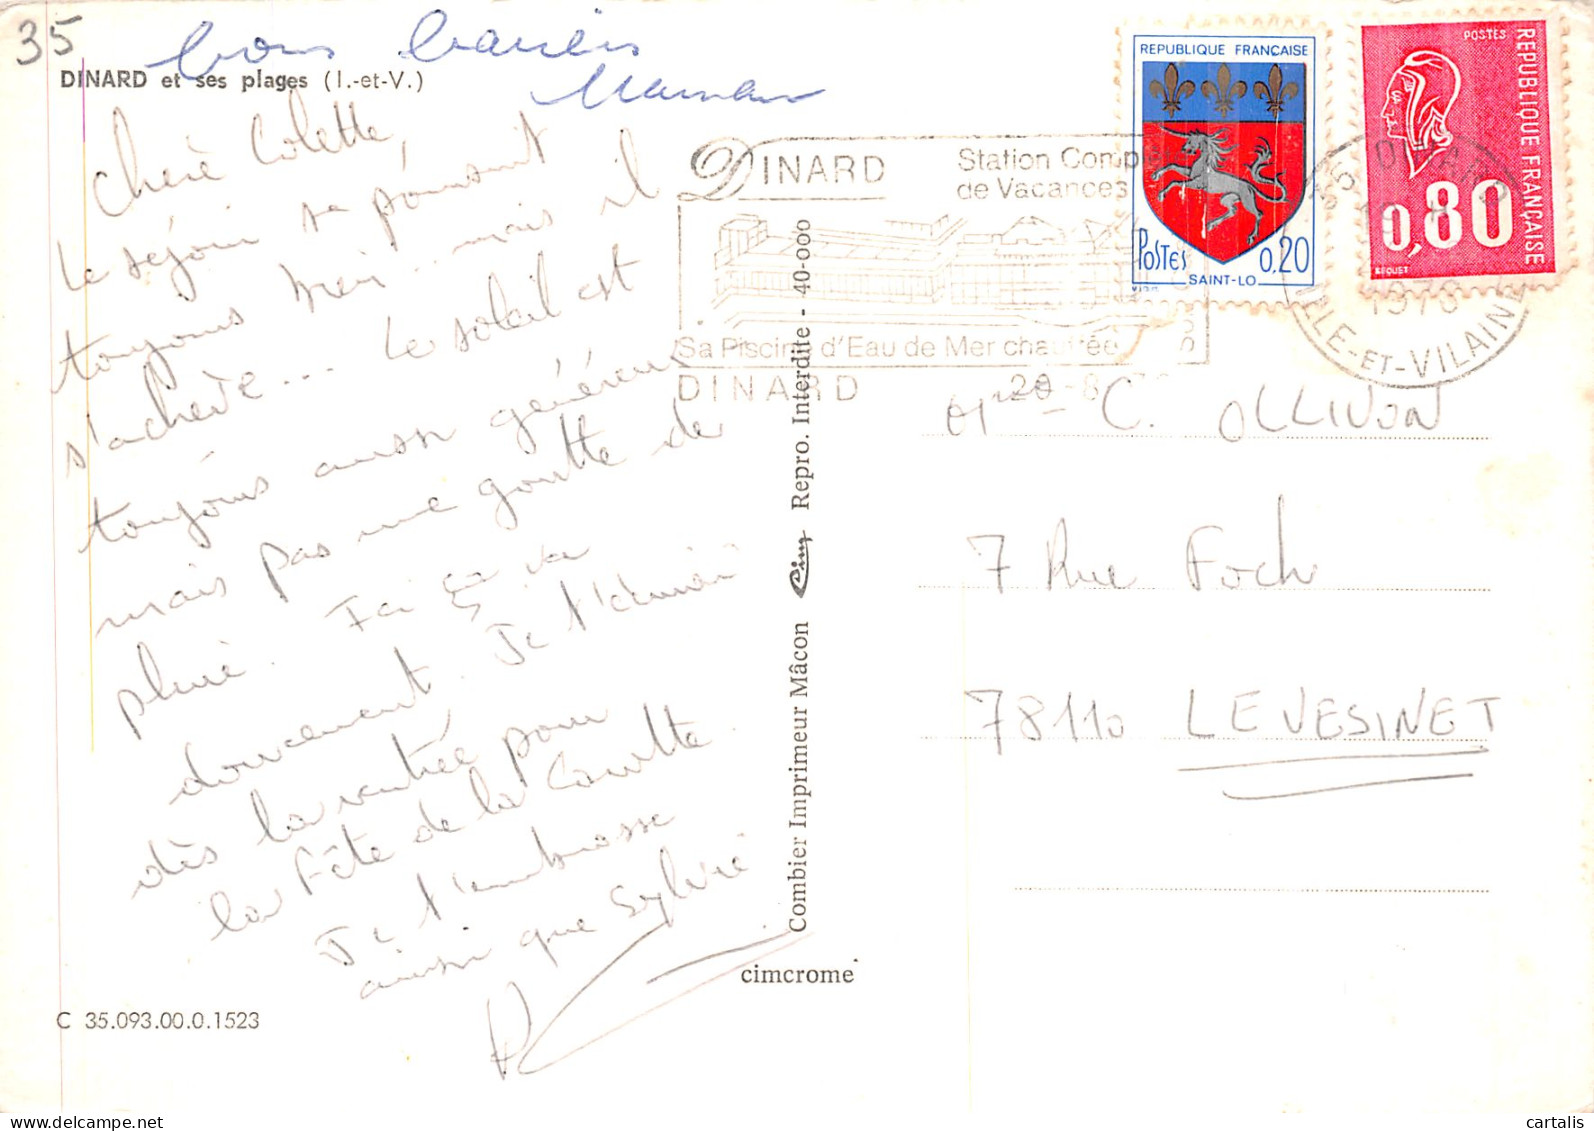 35
bons baisers
Maman
DINARD et ses plages (I.-et-V.)
Chère Colette,
le séjour se poursuit
toujours mais il
s'achève... le soleil est
toujours aussi généreux
mais pas une goutte de
pluie. J'ai ça va
doucement. Je t'
dès la rentrée pour
la fête de la
Je t'embrasse
ainsi que Sylvie
C 35.093.00.0.1523
Combier Imprimeur Mâcon Cim Repro. Interdite - 40-000
cimcrome
DINARD
Station
de Vacances
Sa Piscine d'Eau de Mer chauffée
DINARD
20-8
REPUBLIQUE FRANCAISE
POSTES 0,20
SAINT-LO
POSTES
REPUBLIQUE FRANÇAISE
0,80
BEQUET
35 DINARD
1976
ILLE-ET-VILAINE
Mme C. OLLIVON
7 Rue Foch
78110 LE VESINET
cartalis
delcampe.net